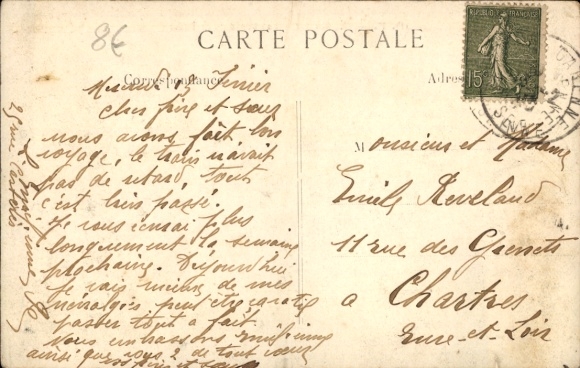 8€
CARTE POSTALE
Correspondance
Mercredi 12 Février
Cher frère et sœur
nous avons fait bon
voyage, le train n'avait
pas de retard, tout
c'est bien passé.
Je vous écrirai plus
longuement la semaine
prochaine. Aujourd'hui
je vais mieux de mes
névralgies peut être ça va
passer tout à fait
vous embrassons
ainsi que vous 2 de tout cœur
25 rue
REPUBLIQUE FRANÇAISE
15c
M onsieur et Madame
Emile Reveland
11 rue des Genets
a Chartres
Eure-et-Loir